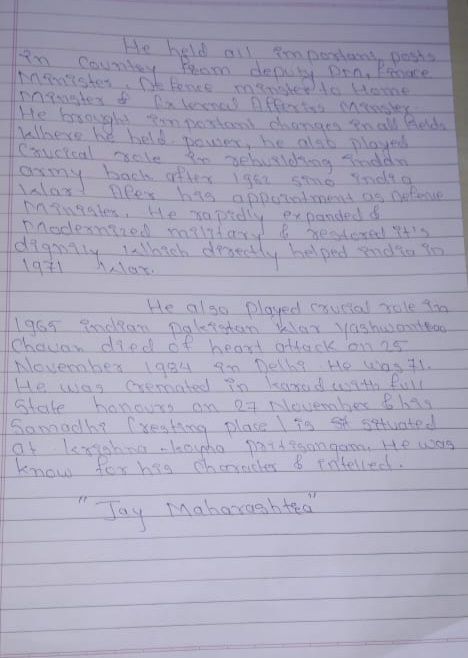 He held all important posts
in country from deputy Prm, Finace
Minister, Defence minster to Home
Minster & External Affairs Minster
He brought important changes in all fields
Where he held power, he also played
Crucical role in rebuilding indan
army back after 1962 sino india
War. After his appointment as Defence
Minister, He rapidly expanded &
Modernized military & restored it's
dignity which directly helped india in
1971 war.
He also played crucial role in
1965 indian pakistan war Yashwantrao
Chavan died of heart attack on 25
November 1984 in Delhi He was 71.
He was cremated in karad with full
State honours on 27 November & his
Samadhi (resting place) is situated
at krishna-koyna pritisangam. He was
know for his character & intellect.
"Jay Maharashtra"